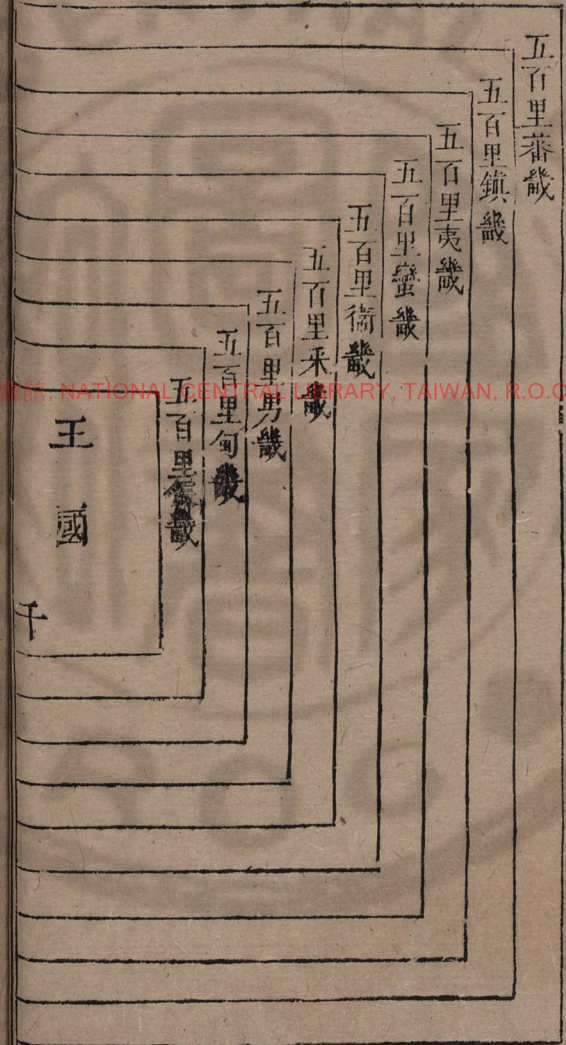 五百里蕃畿
五百里鎮畿
五百里夷畿
五百里蠻畿
五百里衛畿
五百里采畿
五百里男畿
五百里甸畿
五百里畿
王國
千
書館, NATIONAL CENTRAL LIBRARY, TAIWAN, R.O.C